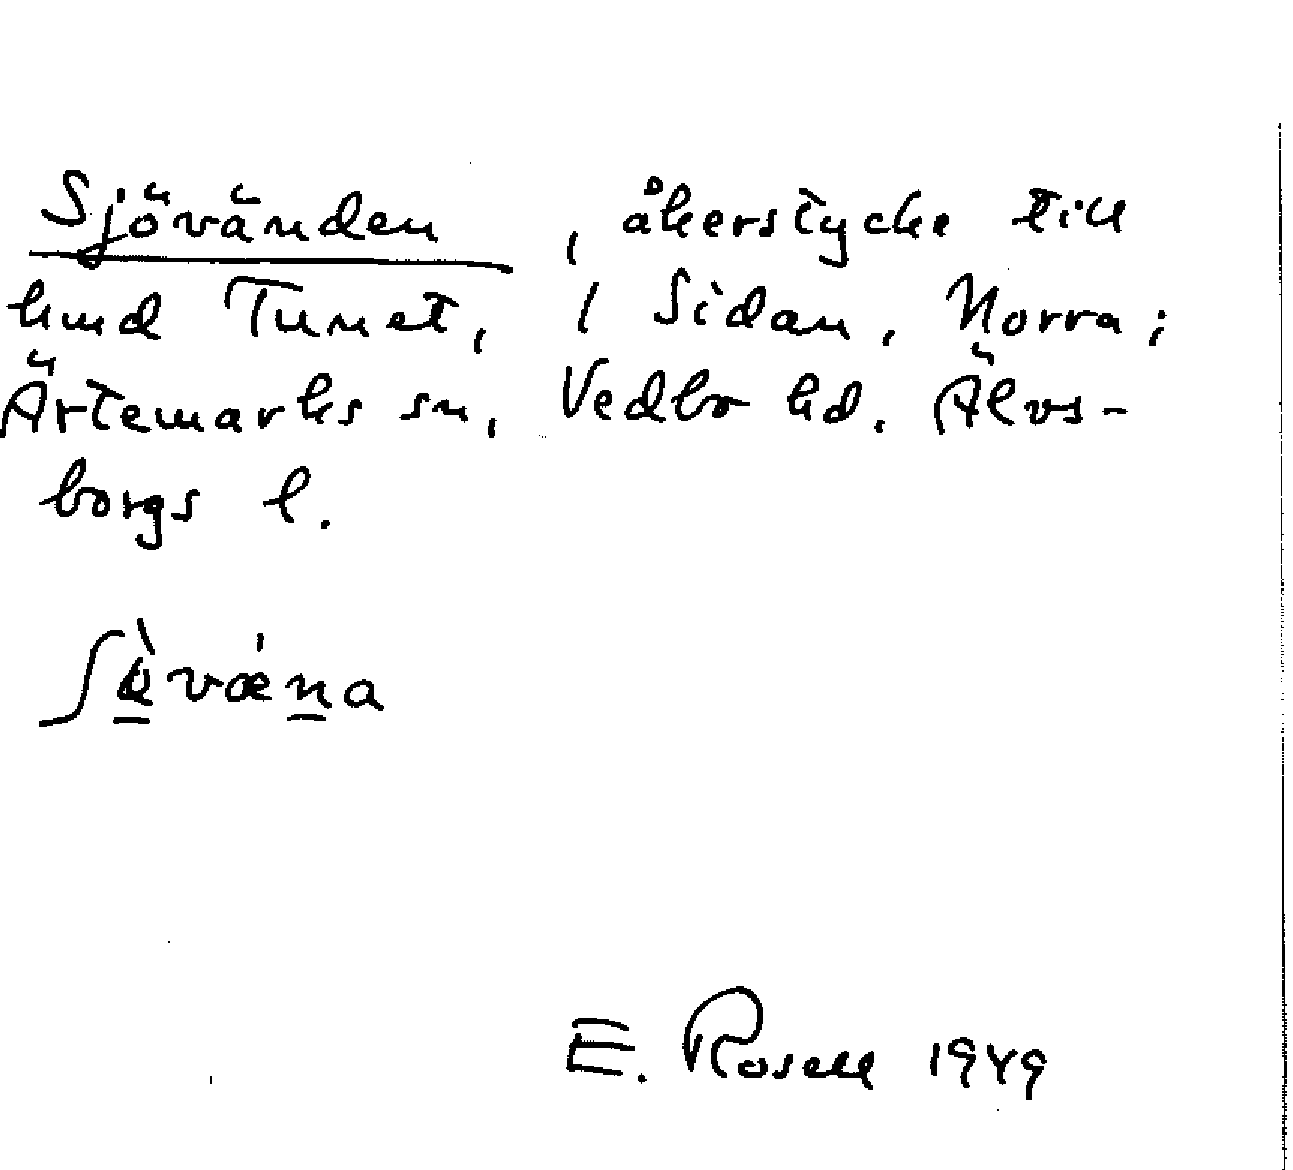 Sjövänden, åkerstycke till
hmd Tunet, 1 Sidan, Norra;
Ärtemarks sn, Vedbo hd. Älvs-
borgs l.
E. Rosell 1949